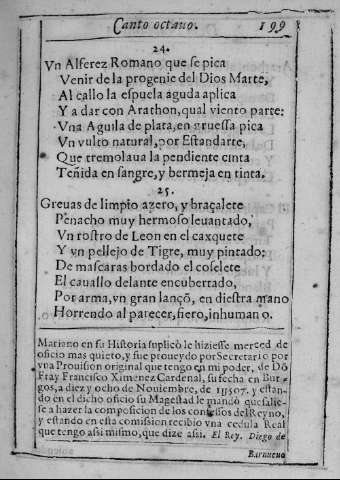 Canto octauo. 199
24.
Vn Alferez Romano que se pica
Venir de la progenie del Dios Marte,
Al callo la espuela aguda aplica
Y a dar con Arathon, qual viento parte:
Vna Aguila de plata, en gruessa pica
Vn vulto natural, por Estandarte,
Que tremolaua la pendiente cinta
Teñida en sangre, y bermeja en tinta.
25.
Greuas de limpio azero, y braçalete
Penacho muy hermoso leuantado,
Vn rostro de Leon en el caxquete
Y vn pellejo de Tigre, muy pintado:
De mascaras bordado el coselete
El cauallo delante encubertado,
Por arma, vn gran lançõ, en diestra mano
Horrendo al parecer, fiero, inhumano.
Mariano en su Historia suplicò le hiziesse merced de
oficio mas quieto, y fue proueydo por Secretario por
vna Prouision original que tengo en mi poder, de Dõ
Fray Francisco Ximenez Cardenal, su fecha en Bur-
gos, a diez y ocho de Nouiembre, de 1507. y estan-
do en el dicho oficio su Magestad le mandò que salies-
se a hazer la composicion de los confessos del Reyno,
y estando en esta comission recibio vna cedula Real
que tengo assi mismo, que dize assi. El Rey. Diego de
Barnueuo